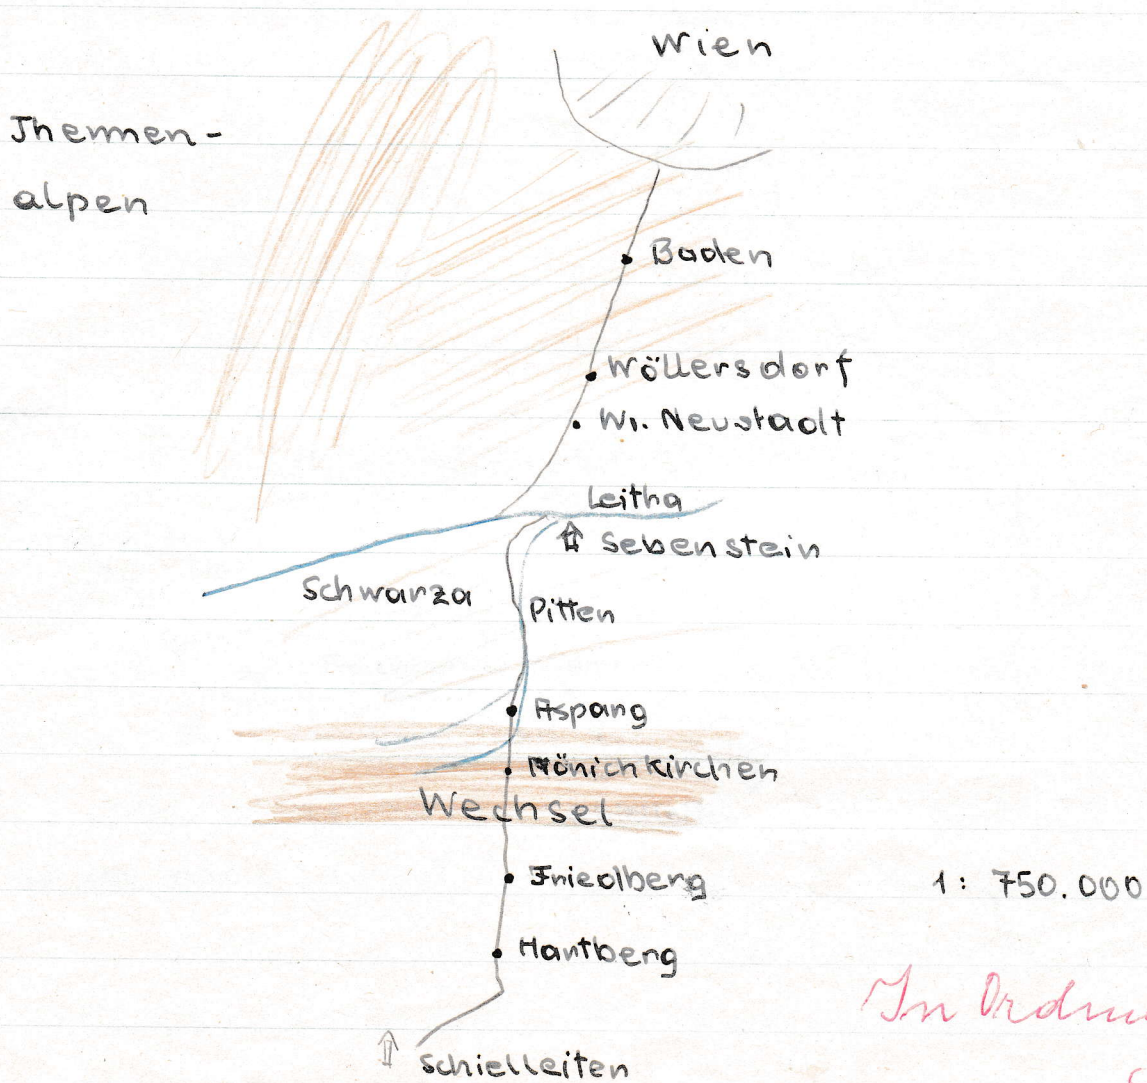 Wien
Thermen-
alpen
Baden
Wöllersdorf
Wr. Neustadt
Leitha
Sebenstein
Schwarza
Pitten
Aspang
Mönichkirchen
Wechsel
Friedberg
1: 750.000
Hartberg
In
Schielleiten